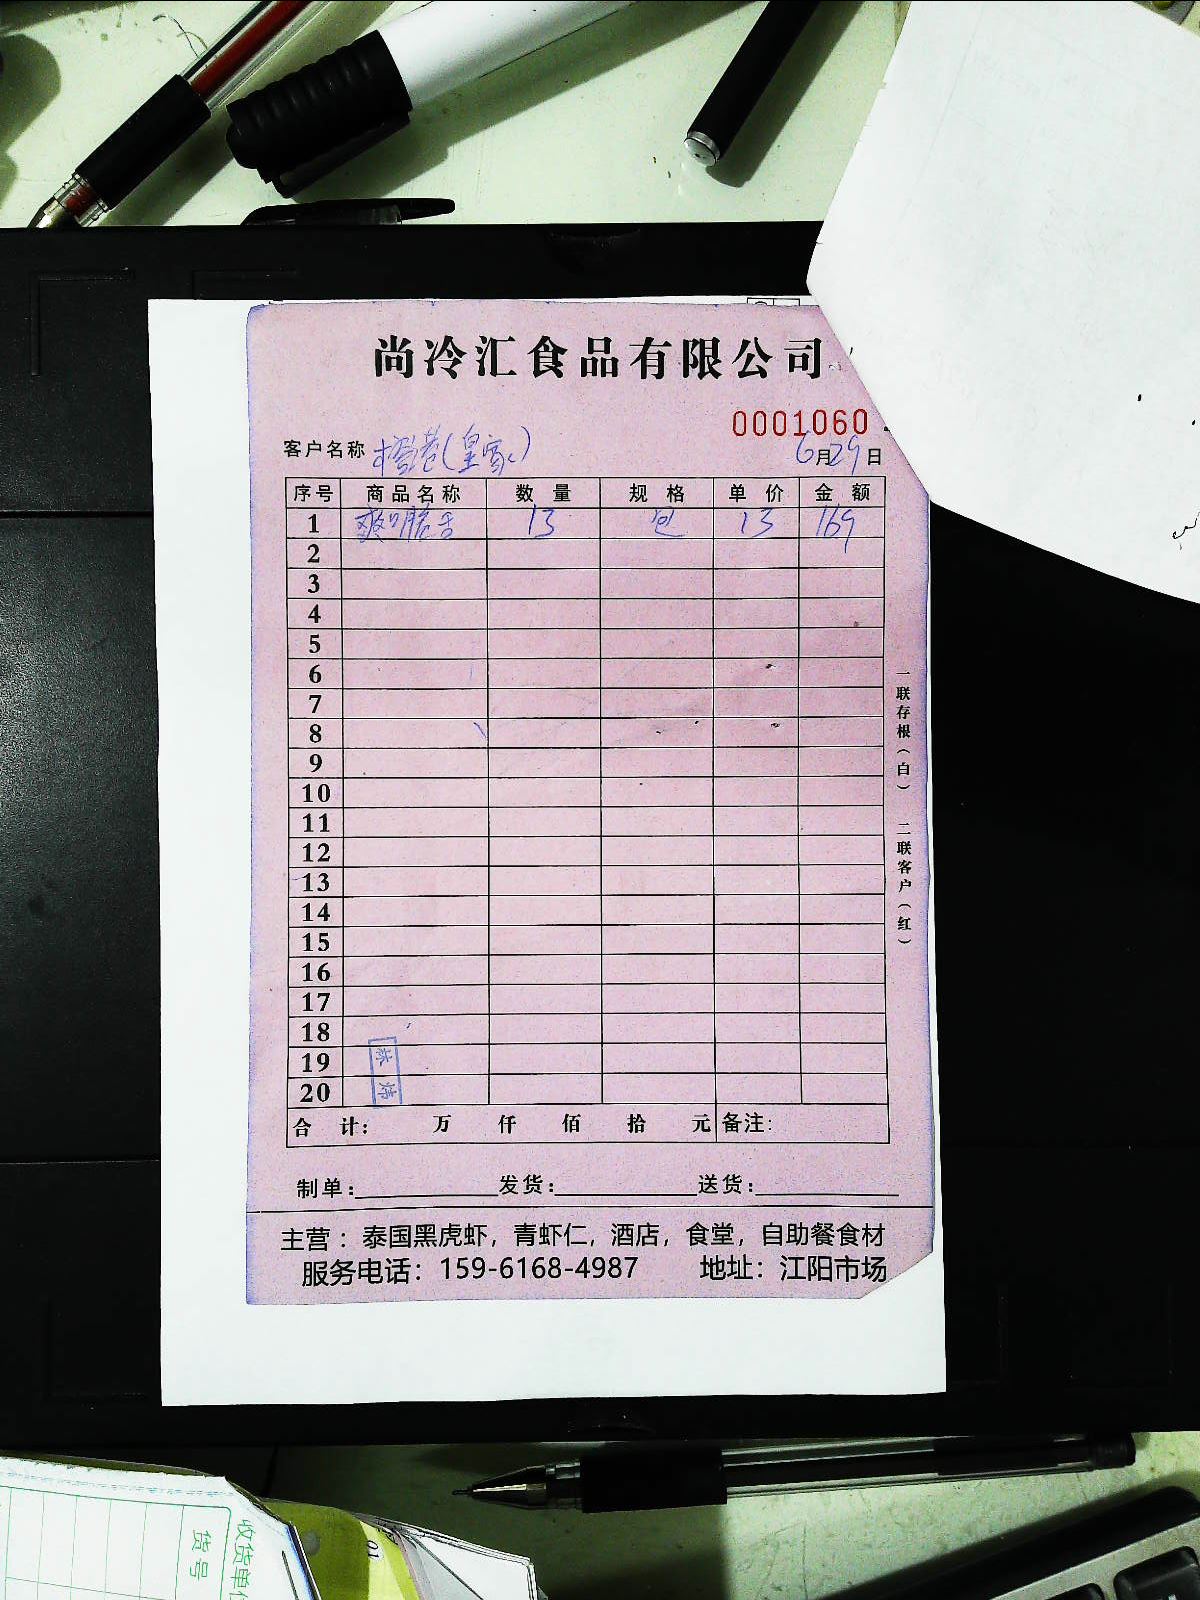 尚冷汇食品有限公司
0001060
客户名称 橙巷(皇家) 6月29日
序号 商品名称 数量 规格 单价 金额
1 爽口脆舌 13 包 13 169
2
3
4
5
6
7
8
9
10
11
12
13
14
15
16
17
18
19
20
合计: 万 仟 佰 拾 元 备注:
制单: 发货: 送货:
主营:泰国黑虎虾,青虾仁,酒店,食堂,自助餐食材
服务电话:159-6168-4987 地址:江阳市场
一联存根(白) 二联客户(红)
收货单位
货号